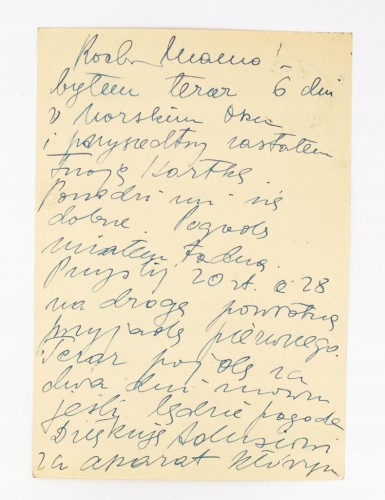 Kochana Mamo!
byłem teraz 6 dni
v Morskim Oku
i przyszedłszy zastałem
Twoją Kartkę.
Powodzi mi się
dobrze. Pogodę
miałem ładną.
Przyślij 20 zł. a 28
na drogę powrotną
przyjadę pierwszego.
Teraz pojdę za
dwa dni znowu
jeśli będzie pogoda
Dziękuję Adusiowi
za aparat którym